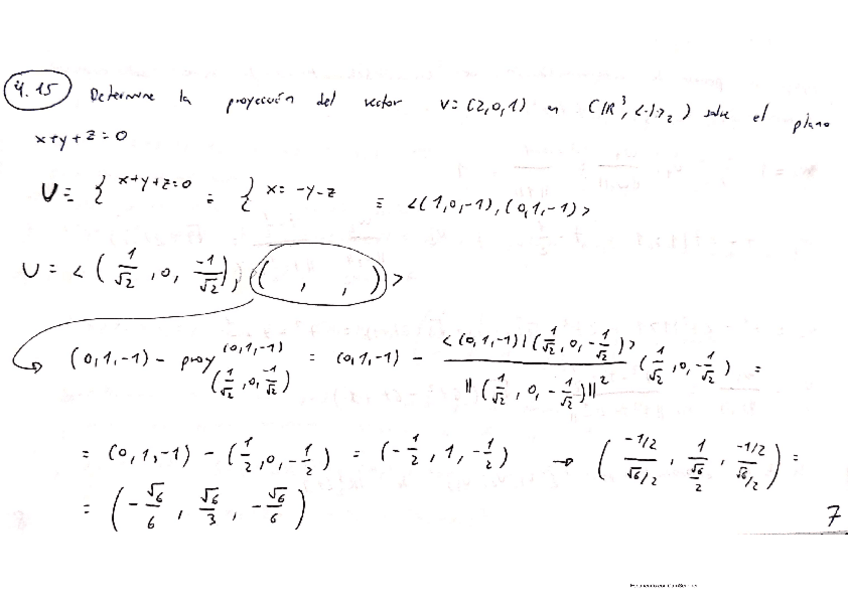 4.15 Determine la proyección del vector v=(2,0,1) en (ℝ³, <·|·>₂) sobre el plano
x+y+z=0
U = { x+y+z=0 = { x = -y-z ≡ <(1,0,-1),(0,1,-1)>
U = <(1/√2, 0, -1/√2), ( , , )>
(0,1,-1) - proy (0,1,-1) (1/√2, 0, -1/√2) = (0,1,-1) - <(0,1,-1)|(1/√2, 0, -1/√2)> / ||(1/√2, 0, -1/√2)||² (1/√2, 0, -1/√2) =
= (0,1,-1) - (1/2, 0, -1/2) = (-1/2, 1, -1/2) → (-1/2 / √6/2, 1 / √6/2, -1/2 / √6/2) =
= (-√6/6, √6/3, -√6/6)
7